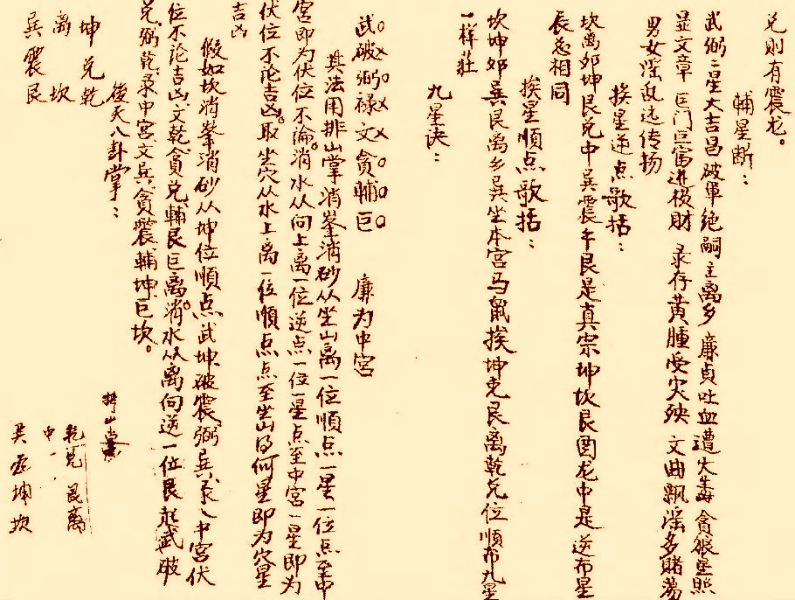 兑则有震龙。
輔星断：
武弼二星大吉昌破軍絶嗣主离乡廉貞吐血遭火毒貪狼星照
显文章巨門巨富進横財录存黄腫受灾殃文曲飘淫多賭蕩
男女淫乱远传扬
挨星逆点歌括：
坎离郊坤艮兑中巽震乾艮是真宗坤坎艮酉龙中是逆布星
辰总相同
挨星順点歌括：
坎坤郊巽艮离乡巽坐本宫马鼠挨坤兑艮离乾兑位順布九星
一样莊
九星诀：
武破弼禄文貪輔巨 廉为中宫
其法用排山掌消峯消砂从坐山离一位順点一星一位点至中
宫即为伏位不論。消水从向上离一位逆点一位一星点至中宫一星即为
伏位不论吉凶。取坐穴从水上离一位順点点至坐山得何星即为穴星
吉凶
假如坎消峯消砂从坤位順点武坤破震弼巽录入中宫伏
位不论吉凶文乾貪兑輔艮巨离。消水从离向逆一位艮起武破
兑弼乾录中宫文巽貪震輔坤巨坎。
後天八卦掌：
坤兑乾
离 坎
巽震艮
排山掌
乾兑艮离
中
巽震坤坎